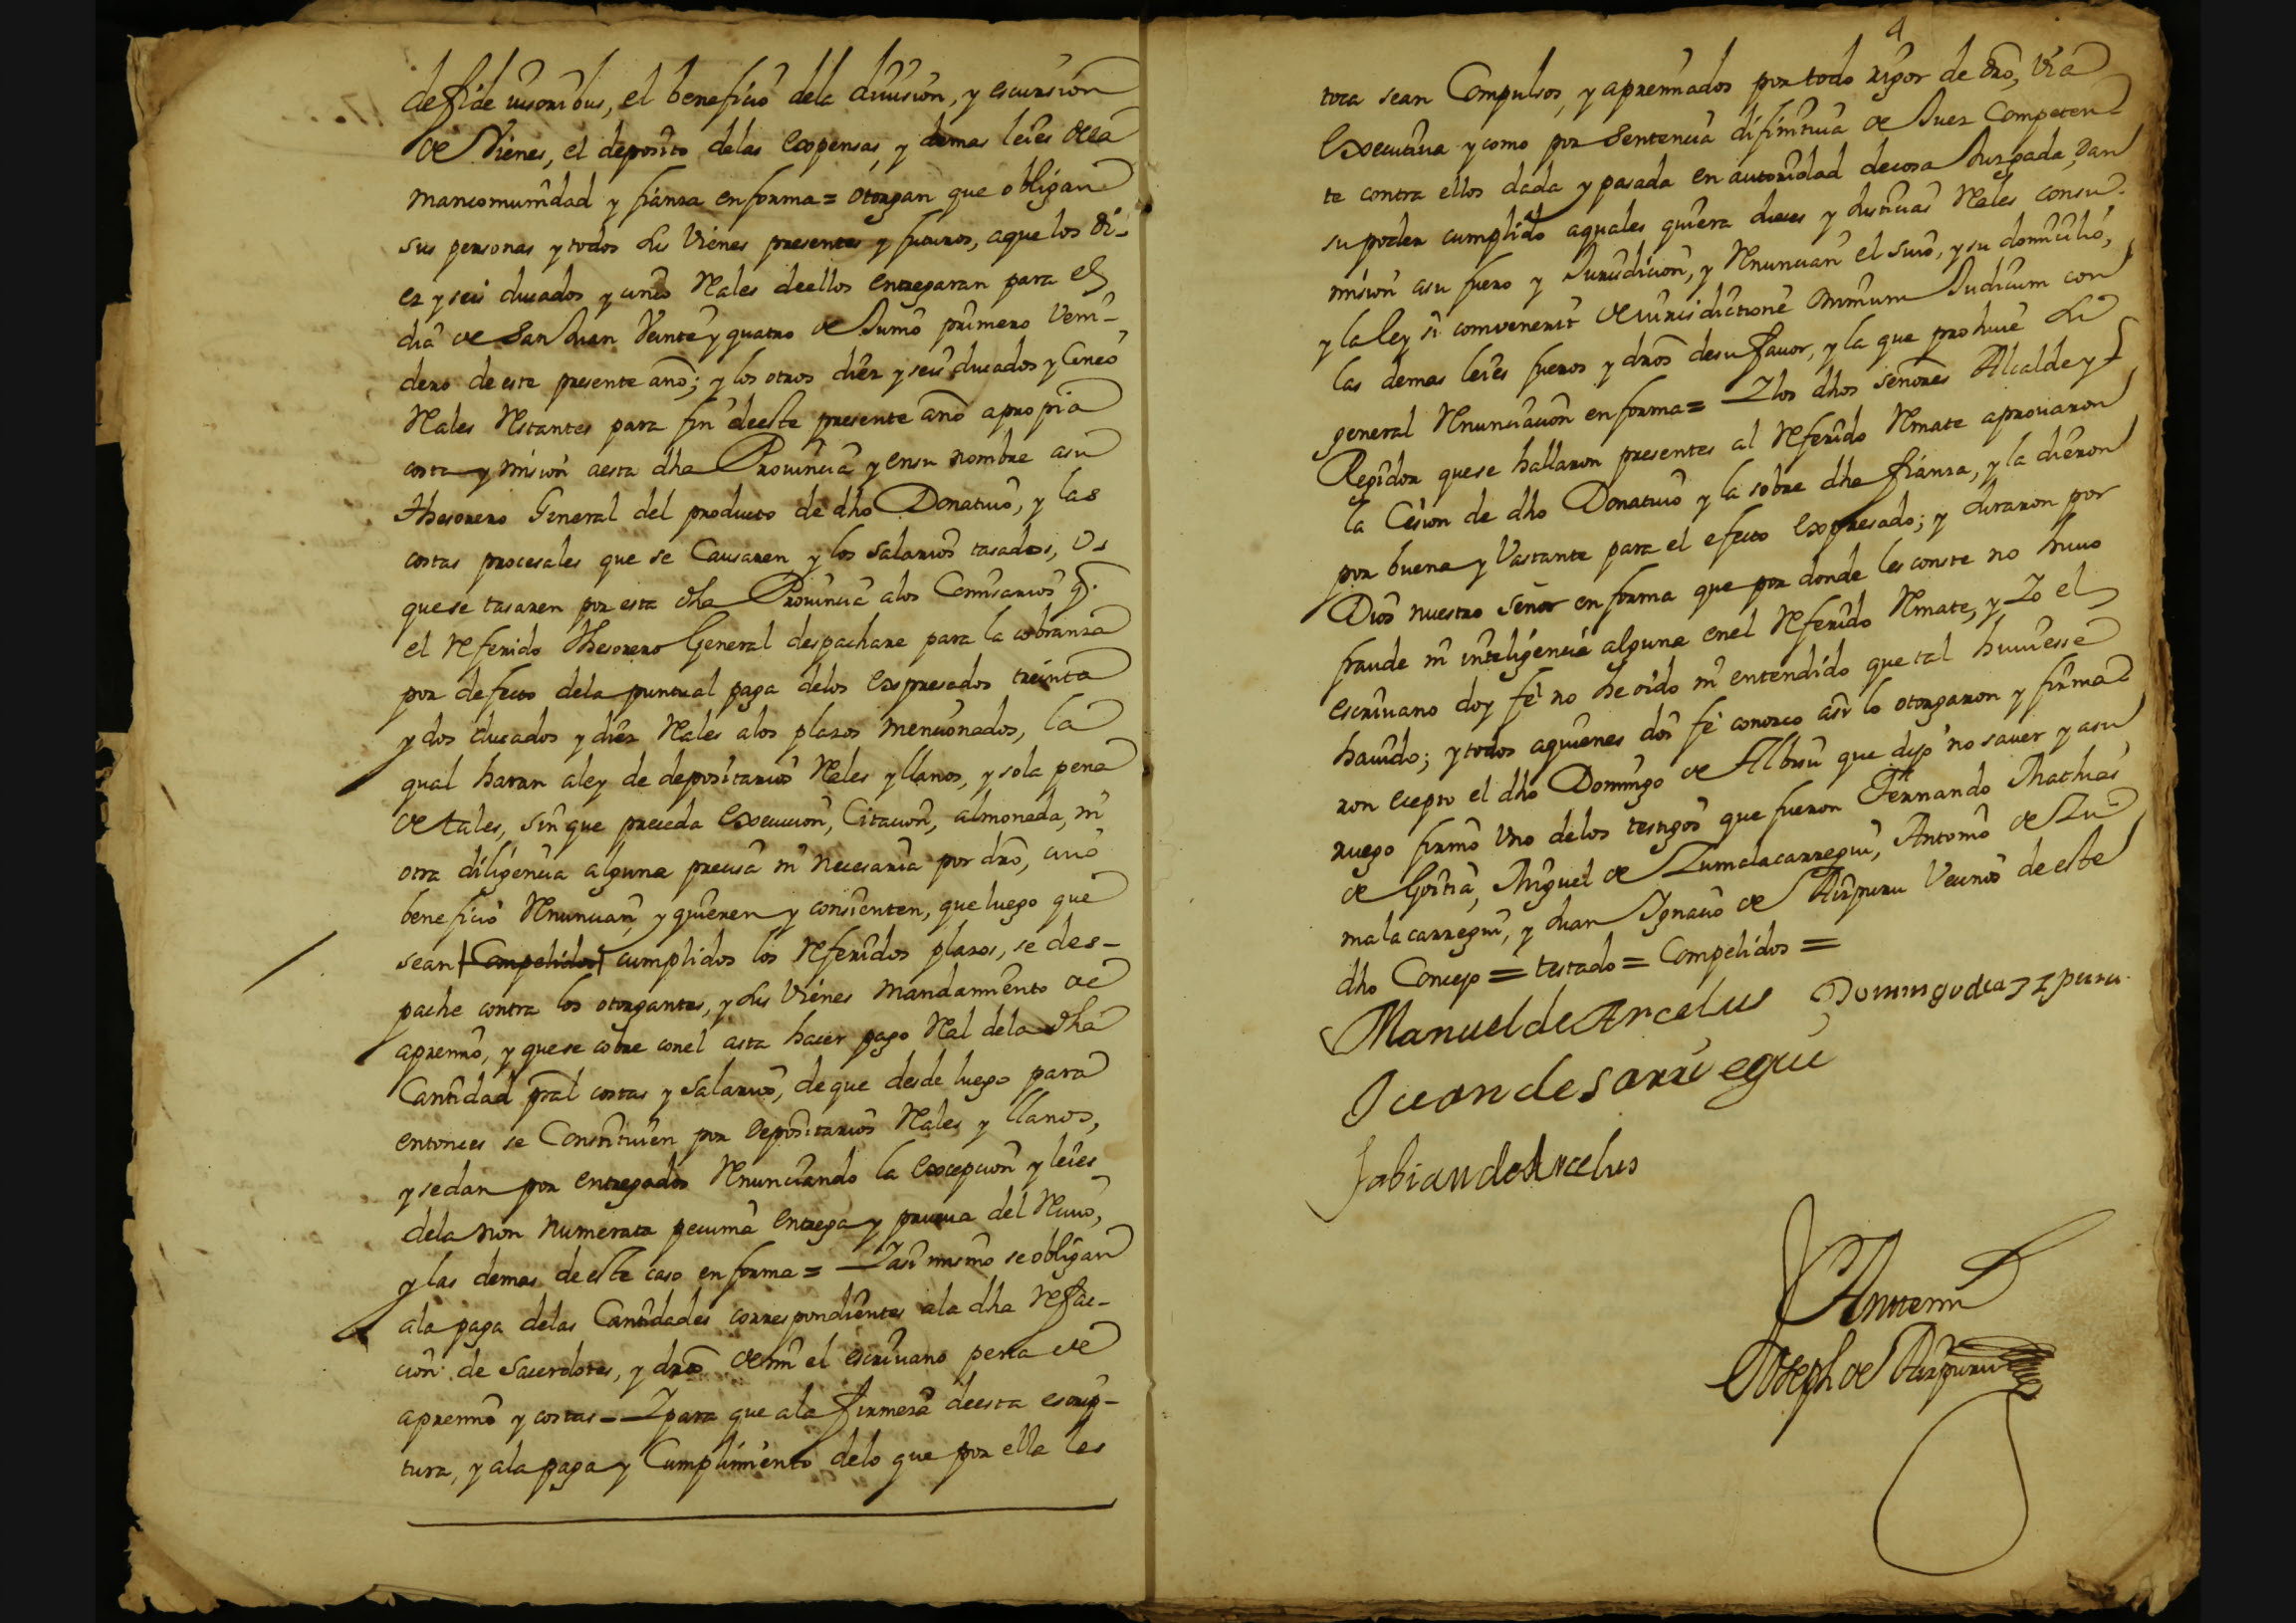 de fide iusoribus, el beneficio dela division, y escursion
de Vienes, el deposito delas expensas, y demas leies dela
mancomunidad y fianza enforma = otorgan que obligan
sus personas ytodos sus Vienes presentes y futuros, aque los di-
ez y seis ducados y cinco Rales deellos entregaran para el
dia de San Juan Veinte y quatro de Junio primero Veni-
dero de este presente año; y los otros diez y seis ducados y Cinco
Rales Restantes para fin deeste presente año apropia
costa y mision aesta dha Provincia y ensu nombre asu
Thesorero General del producto de dho Donativo, y las
costas procesales que se Causaren y los salarios tasados, v
quese tasaren por esta dha Provincia alos Comisarios q.
el Referido Thesorero General despachare para la cobranza
por defecto dela puntual paga delos Expresados treinta
y dos ducados y diez Rales alos plazos mencionados, la
qual haran aley de depositarios Rales yllanos, y sola pena
de tales, sin que preceda Execucion, Citacion, almoneda, ni
otra diligencia alguna precisa ni necesaria por dro, cuio
beneficio Renuncian, y quieren y consienten, que luego que
sean Compelidos cumplidos los Referidos plazos, se des-
pache contra los otorgantes, y sus Vienes mandamiento de
apremio, y quese cobre conel asta hacer pago Ral dela dha
Cantidad pral costas y salarios, deque desde luego para
entonces se Constituien por Depositarios Rales y llanos,
y sedan por entregados Renunciando la Excepcion y leies
dela non numerata pecunia entrega y prueva del Recivo,
y las demas de este caso en forma = Yasi mismo se obligan
ala paga delas Cantidades correspondientes ala dha Refac-
cion de Sacerdotes, y dros de mi el escrivano pena de
apremio y costas = Y para que ala firmeza deesta escrip-
tura, y ala paga y Cumplimiento delo que por ella les
4
toca sean Compulsos, y apremiados por todo rigor de dro, Via
Executiva y como por Sentencia difinitiva de Juez Competen-
te contra ellos dada y pasada en autoridad decosa Juzgada, dan
su poder cumplido aquales quiera Jueces y Justicias Rales consu-
mision asu fuero y Jurisdicion, y Renuncian el suio, y su domicilio,
y la ley si convenerit de iurisdictione omnium Judicum con
las demas leies fueros y dros desu favor, y la que prohive la
general Renunciacion enforma = Y los dhos señores Alcalde y
Regidor quese hallaron presentes al Referido Remate aprovaron
la Cesion de dho Donativo y la sobre dha fianza, y la dieron
por buena y Vastante para el efecto Expresado; y Juraron por
Dios nuestro Señor en forma que por donde les conste no huvo
fraude ni inteligencia alguna enel Referido Remate, y Yo el
escrivano doy fe no he oido ni entendido que tal huviesse
havido; y todos aquienes doi fe conozco asi lo otorgaron y firma-
ron ecepto el dho Domingo de Albisu que dijo no saver y asu
ruego firmo Uno delos testigos que fueron Fernando Mathias
de Goitia, Miguel de Zumalacarregui, Antonio de Zu-
malacarregui, y Juan Ignacio de Aizpuru Vecinos de este
dho Concejo = testado = Compelidos =
Manuel de Arcelus Domingo de Aizpuru
Juan de Sarriegui
Fabian de Arcelus
Antemi
Joseph de Aizpuru